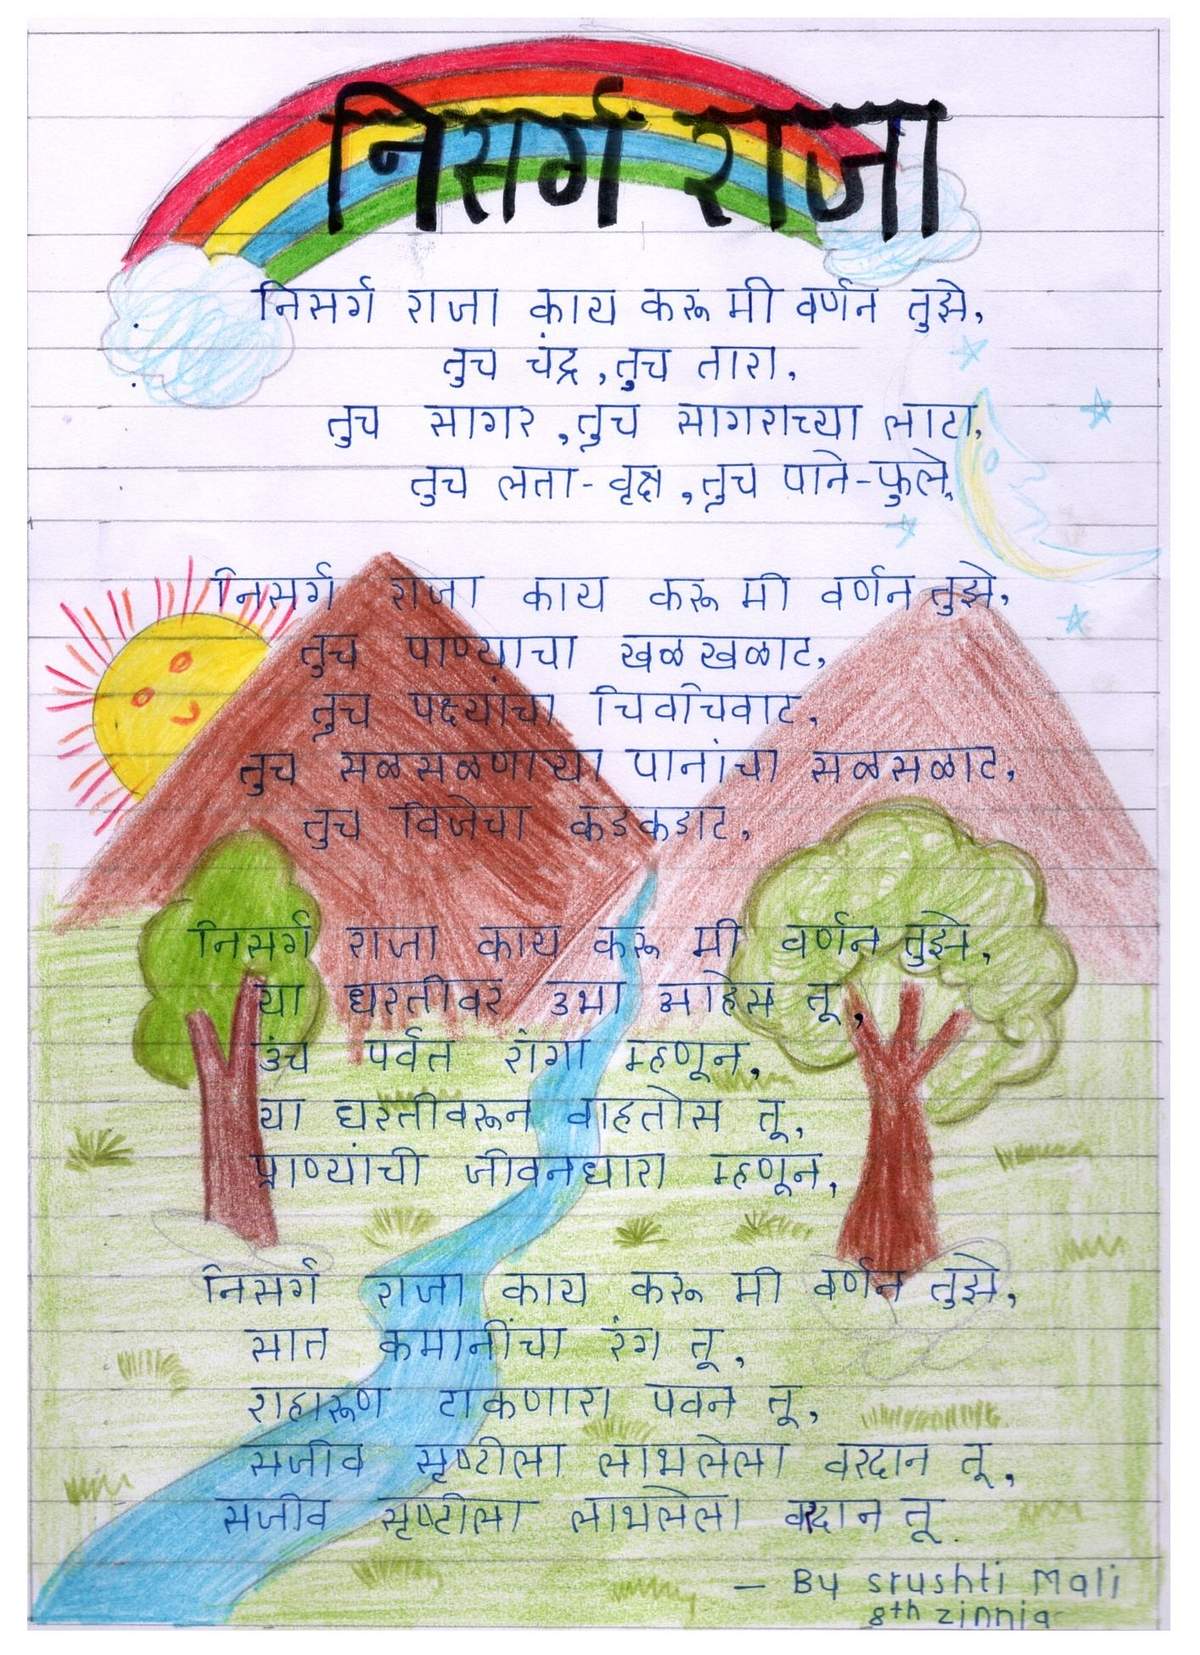 निसर्ग राजा
निसर्ग राजा काय करू मी वर्णन तुझे,
तुच चंद्र, तुच तारा,
तुच सागर, तुच सागराच्या लाटा,
तुच लता-वृक्ष, तुच पाने-फुले,
निसर्ग राजा काय करू मी वर्णन तुझे,
तुच पाण्याचा खळखळाट,
तुच पक्ष्यांचा चिवचिवाट,
तुच सळसळणाऱ्या पानांचा सळसळाट,
तुच विजेचा कडकडाट,
निसर्ग राजा काय करू मी वर्णन तुझे,
या धरतीवर उभा आहेस तू,
उंच पर्वत रांगा म्हणून,
या धरतीवरून वाहतोस तू,
प्राण्यांची जीवनधारा म्हणून,
निसर्ग राजा काय करू मी वर्णन तुझे,
सात कमानींचा रंग तू,
शहारूण टाकणारा पवन तू,
सजीव सृष्टीला लाभलेला वरदान तू,
सजीव सृष्टीला लाभलेला वरदान तू.
- By srushti Mali
8th zinnia